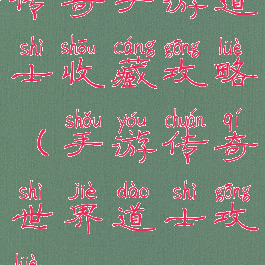 传奇手游道
shì shōu cáng gōng lüè
士收藏攻略
shǒu yóu chuán qí
(手游传奇
shì jiè dào shì gōng
世界道士攻
lüè